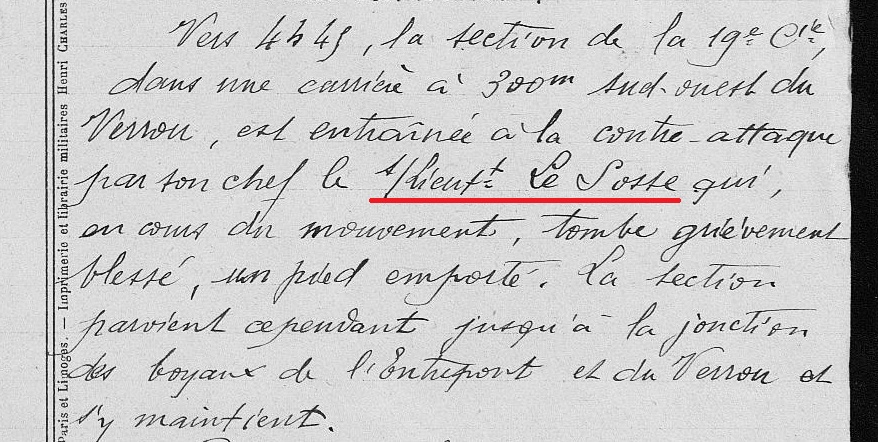 Vers 4h45, la section de la 19e Cie,
dans une carrière à 300m sud-ouest du
Verrou, est entraînée à la contre-attaque
par son chef le s/lieut-t Le Sosse qui,
en cours du mouvement, tombe grièvement
blessé, un pied emporté. La section
parvient cependant jusqu'à la jonction
des boyaux de l'Entrepont et du Verrou et
s'y maintient.
Paris et Limoges. — Imprimerie et librairie militaires Henri CHARLES